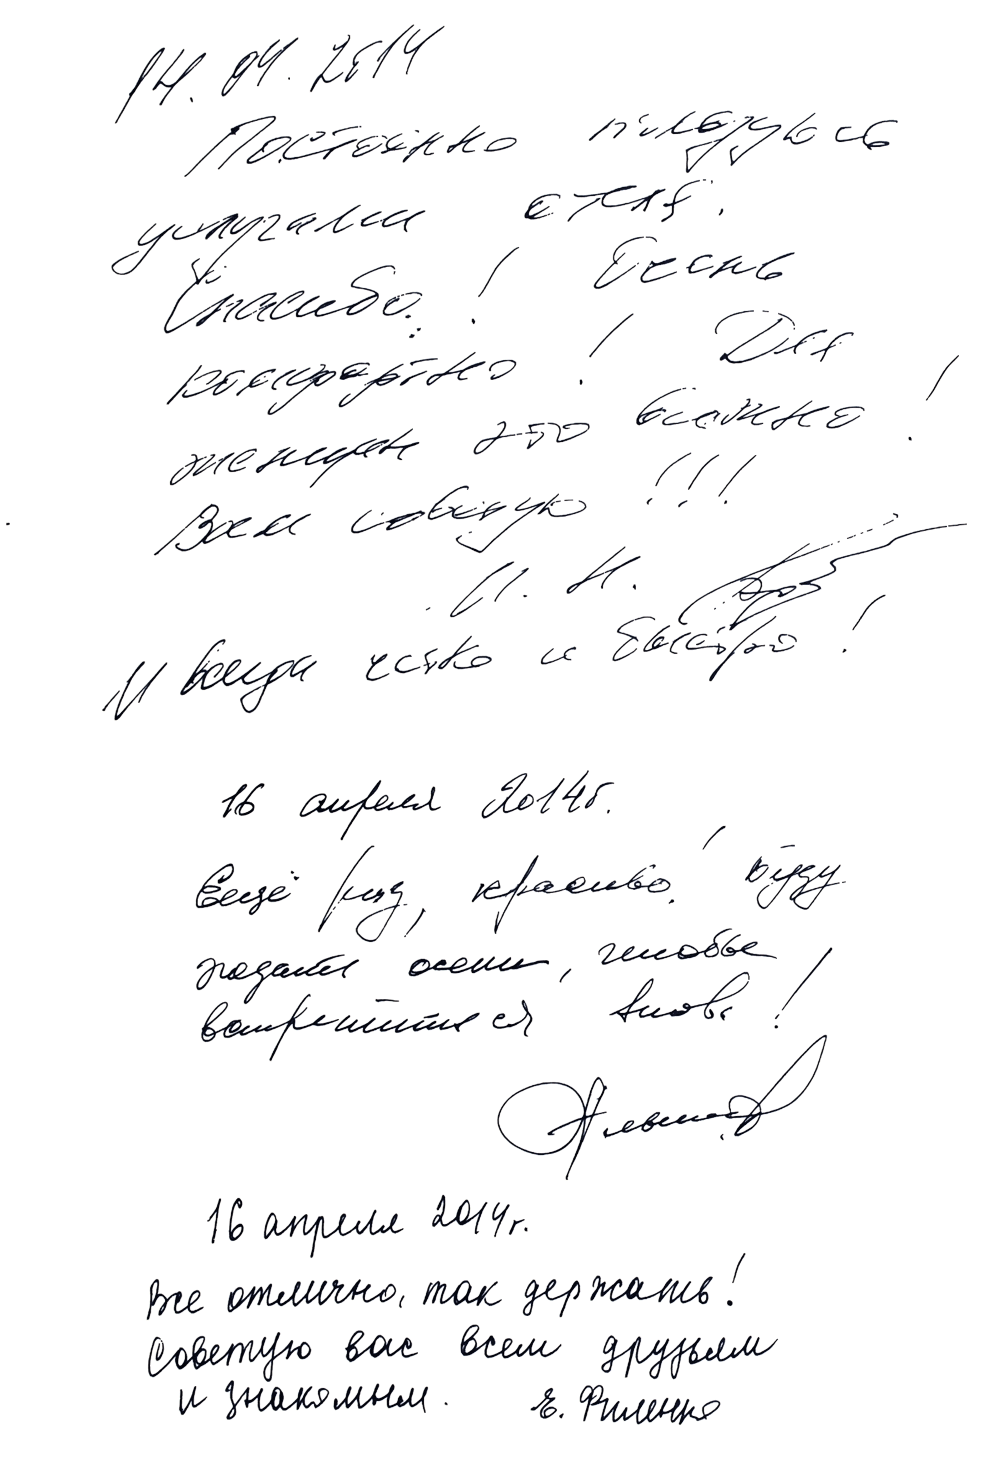 14.04.2014
Постоянно пользуюсь
услугами отеля.
Спасибо! Очень
комфортно! Для
женщин это важно!
Вам советую!!!
И. Н.
И всегда четко и быстро!
16 апреля 2014г.
Ещё раз, красиво! Буду
ждать осени, чтобы
встретиться вновь!
16 апреля 2014г.
Все отлично, так держать!
Советую вас всем друзьям
и знакомым. Е. Филенко